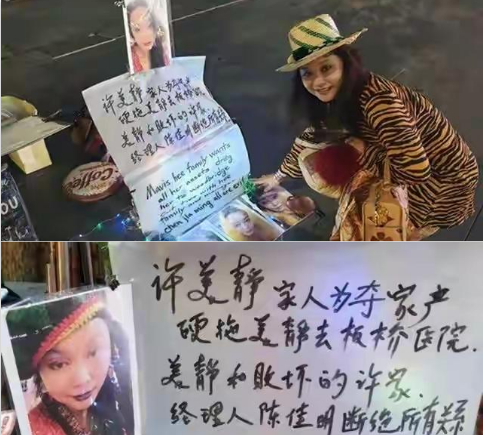 许美静家人为夺家产
硬拖美静去板桥医院
美静和败坏的许家
经理人陈佳明断绝所有关系
Mavis hee family wants
all her assets drag
her to woodbridge
family
chen jia ming all
Coffee
YOU
许美静家人为夺家产
硬拖美静去板桥医院.
美静和败坏的许家.
经理人陈佳明断绝所有关系